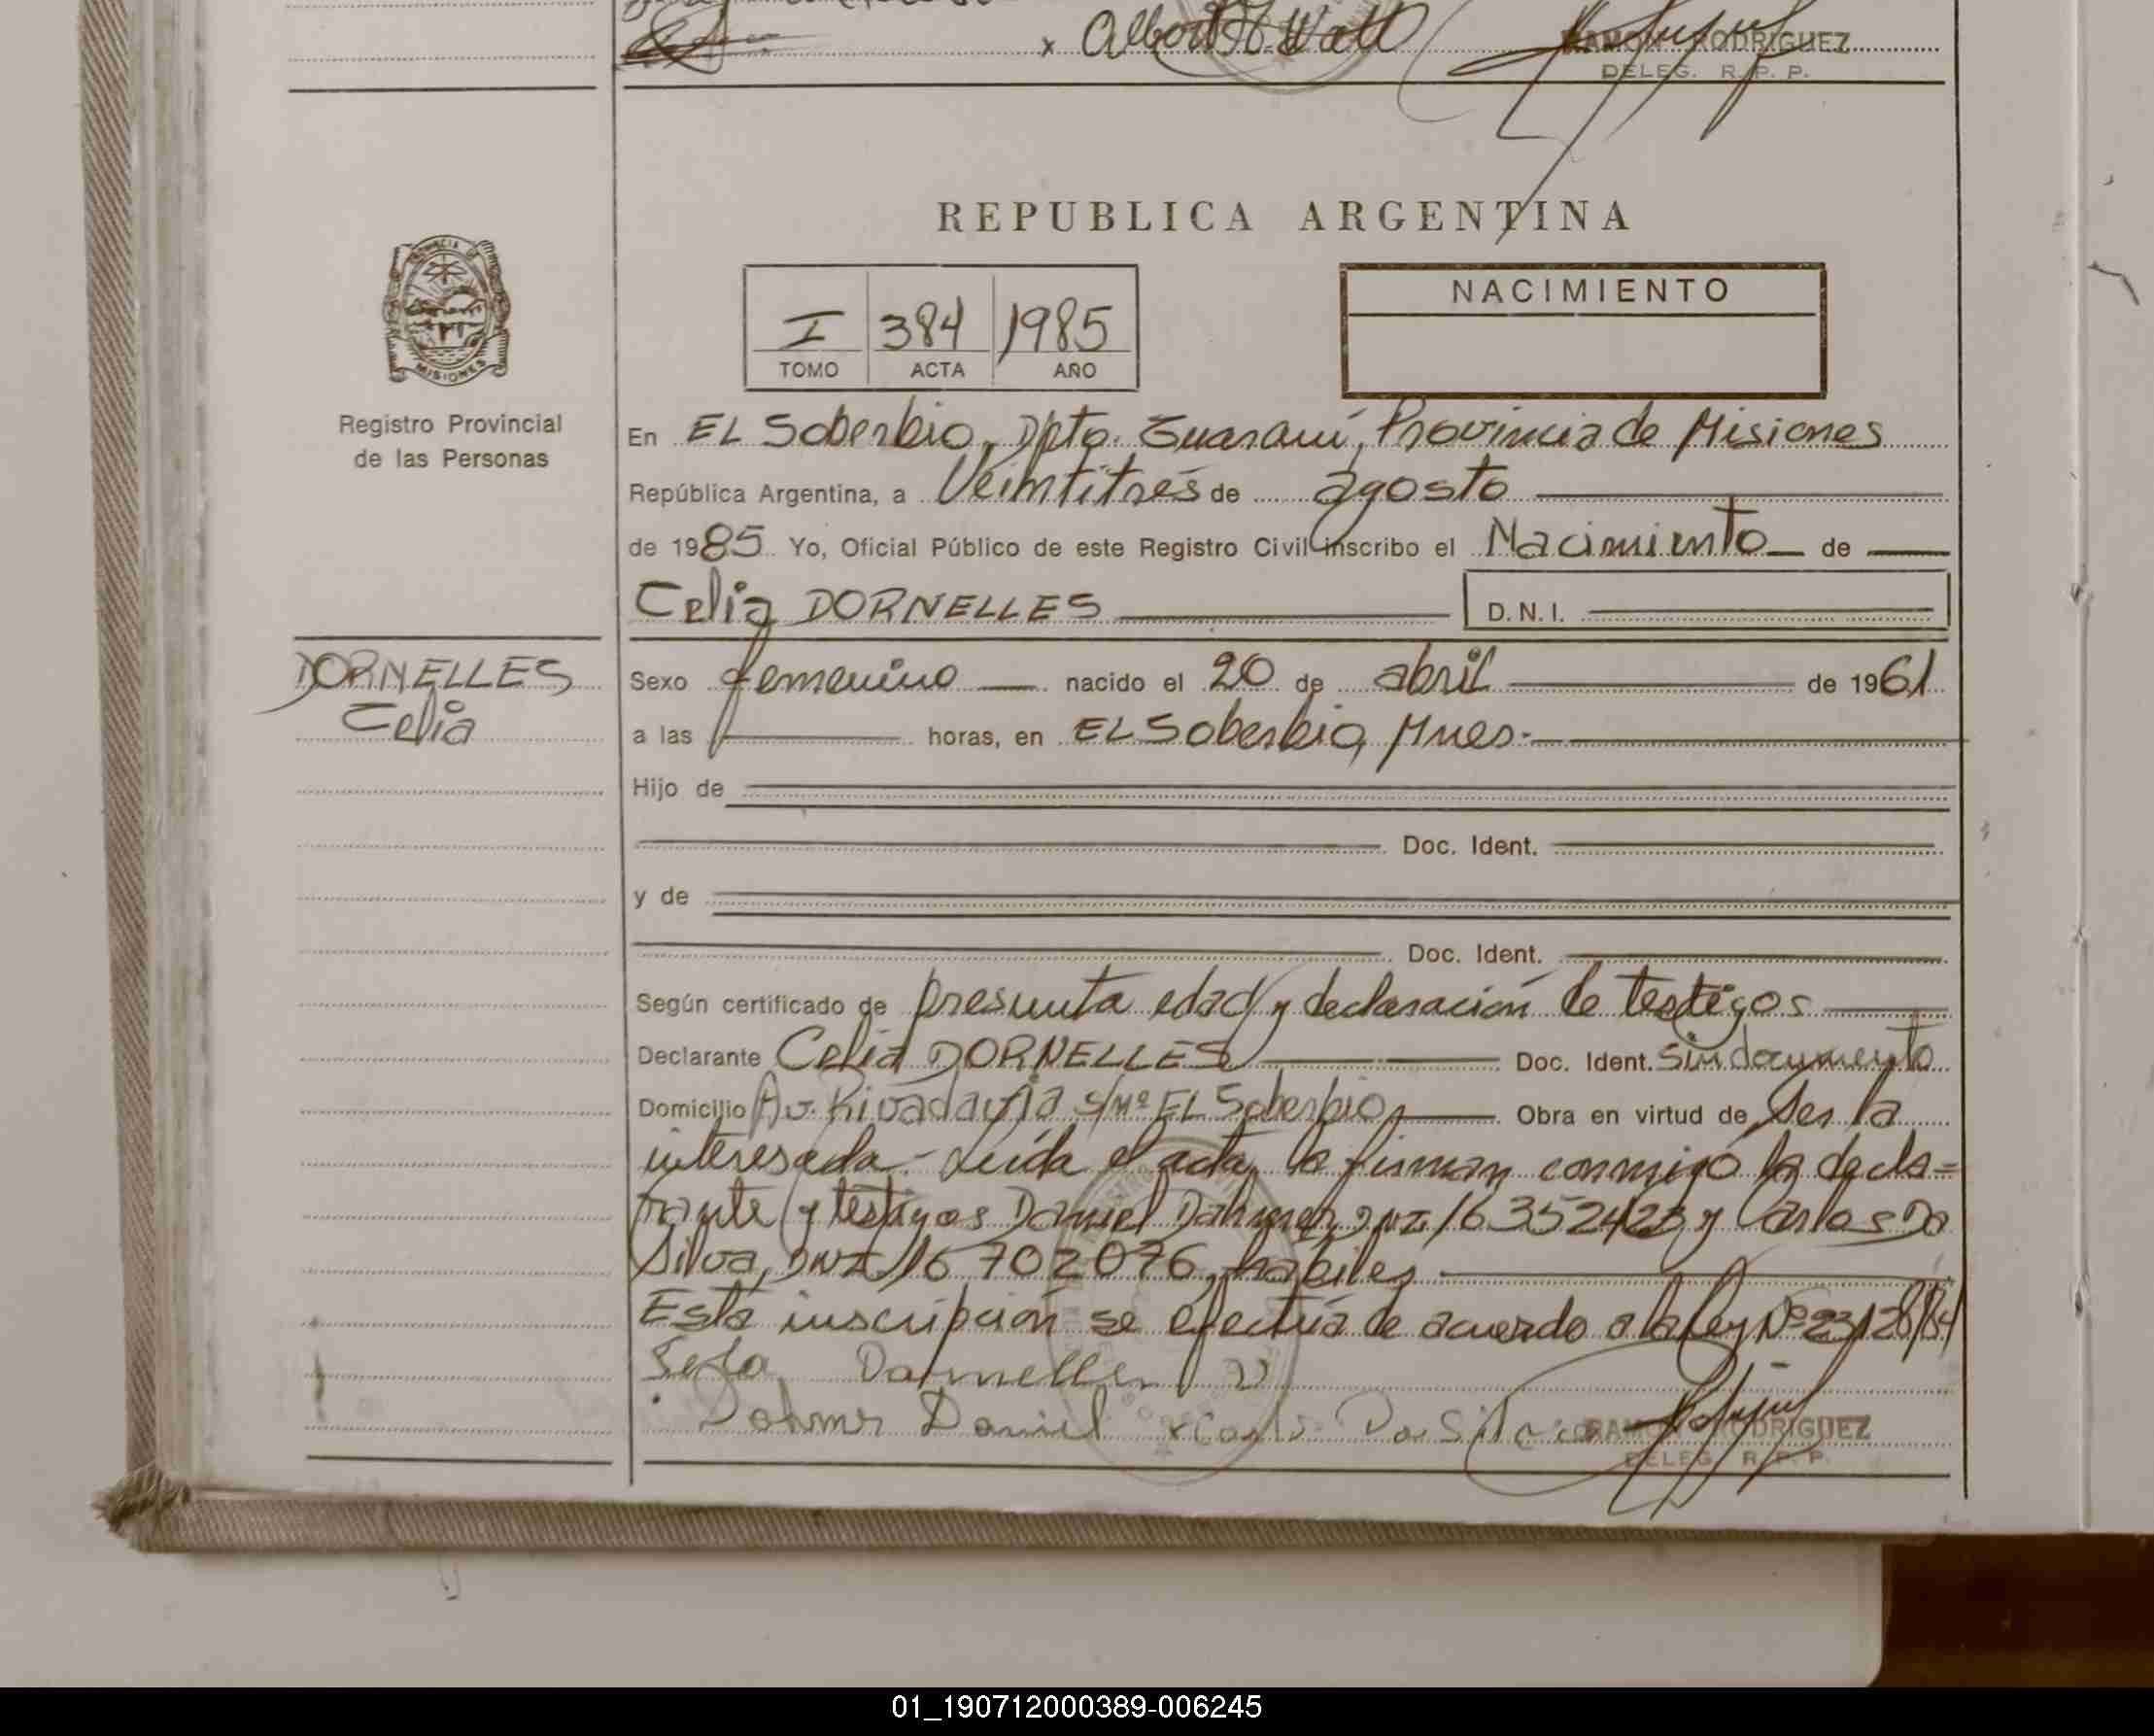 x Albert H. Watt
RAMON RODRIGUEZ
DELEG. R. P. P.
REPUBLICA ARGENTINA
PROVINCIA DE MISIONES
Registro Provincial
de las Personas
I 384 1985
TOMO ACTA AÑO
NACIMIENTO
En EL Soberbio, Dpto. Guaraní, Provincia de Misiones
República Argentina, a Veintitrés de agosto
de 1985 Yo, Oficial Público de este Registro Civil inscribo el Nacimiento de
Celia DORNELLES D.N.I.
DORNELLES
Celia
Sexo femenino nacido el 20 de abril de 1961
a las horas, en EL Soberbio, Mnes.-
Hijo de
Doc. Ident.
y de
Doc. Ident.
Según certificado de presunta edad y declaración de testigos
Declarante Celia DORNELLES Doc. Ident. Sin documento
Domicilio Av. Rivadavia s/nº EL Soberbio, Obra en virtud de Ser la
interesada.- Leída el acta, la firman conmigo la decla=
rante y testigos Daniel Dahmer, DNI 16 352423 y Carlos Da
Silva, DNI 16 702076, hábiles
Esta inscripción se efectúa de acuerdo a la Ley Nº 23128/84
Dornelles
Dahmer Daniel x Carlos Da Silva
RAMON RODRIGUEZ
DELEG. R. P. P.
01_190712000389-006245